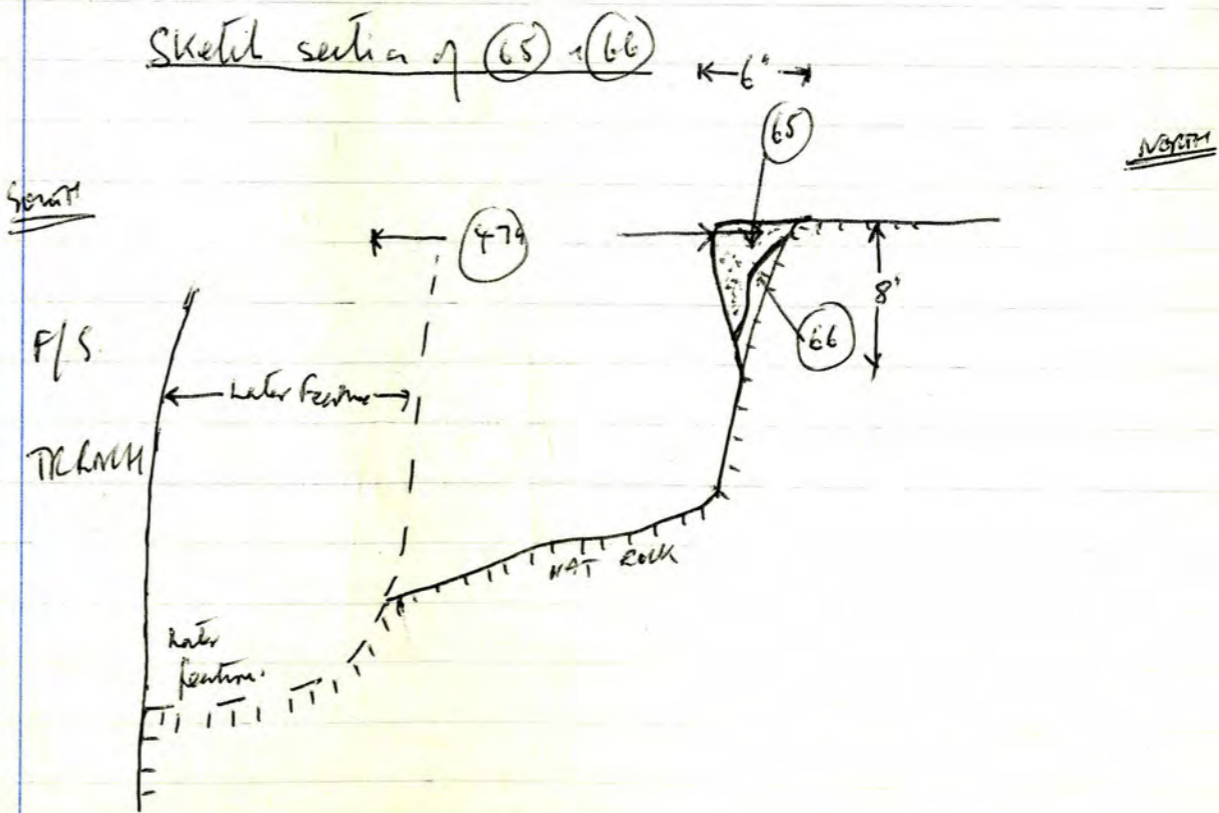 Sketch section of 65 + 66
6"
65
NORTH
South
479
8"
F/S.
66
Later Feature
TRENCH
NAT ROCK
Later
feature.